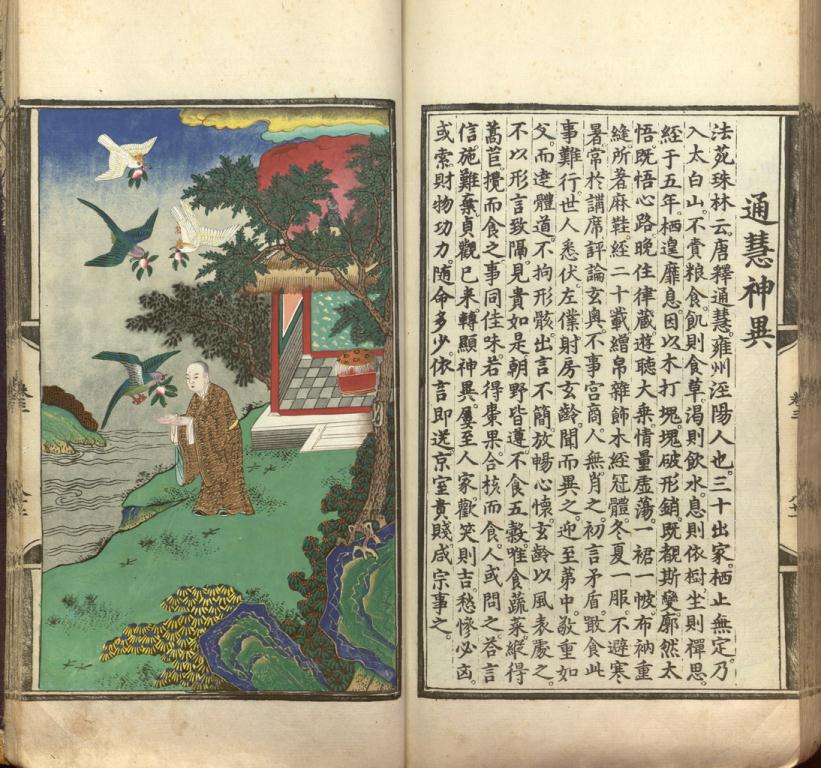 通慧神異
法苑珠林云。唐釋通慧。雍州涇陽人也。三十出家。栖止無定。乃
入太白山。不賷粮食。飢則食草。渴則飲水。息則依樹。坐則禪思。
經于五年。栖遑靡息。因以木打塊。塊破形銷。旣覩斯變。廓然太
悟。旣悟心路。晚住律藏。遊聽大乘。情量虛蕩。一裙一帔。布衲重
縫。所著麻鞋。經二十載。繒帛雜飾。木經冠體。冬夏一服。不避寒
暑。常於講席。評論玄奥。不事宫商。人無肖之。初言矛盾。戢食此
事難行。世人悉伏。左僕射房玄齡。聞而異之。迎至第中。敬重如
父。而達體道。不拘形骸。出言不簡。放暢心懷。玄齡以風表處之。
不以形言致隔。見貴如是。朝野皆遵。不食五穀。唯食蔬菜。縱得
蒿苣。攪而食之。事同佳味。若得棗果。合核而食。人或問之。答言
信施難棄。貞觀已來。轉顯神異。屢至人家。歡笑則吉。愁慘必凶。
或索財物功力。随命多少。依言即送。京室貴賤。咸宗事之。
卷三